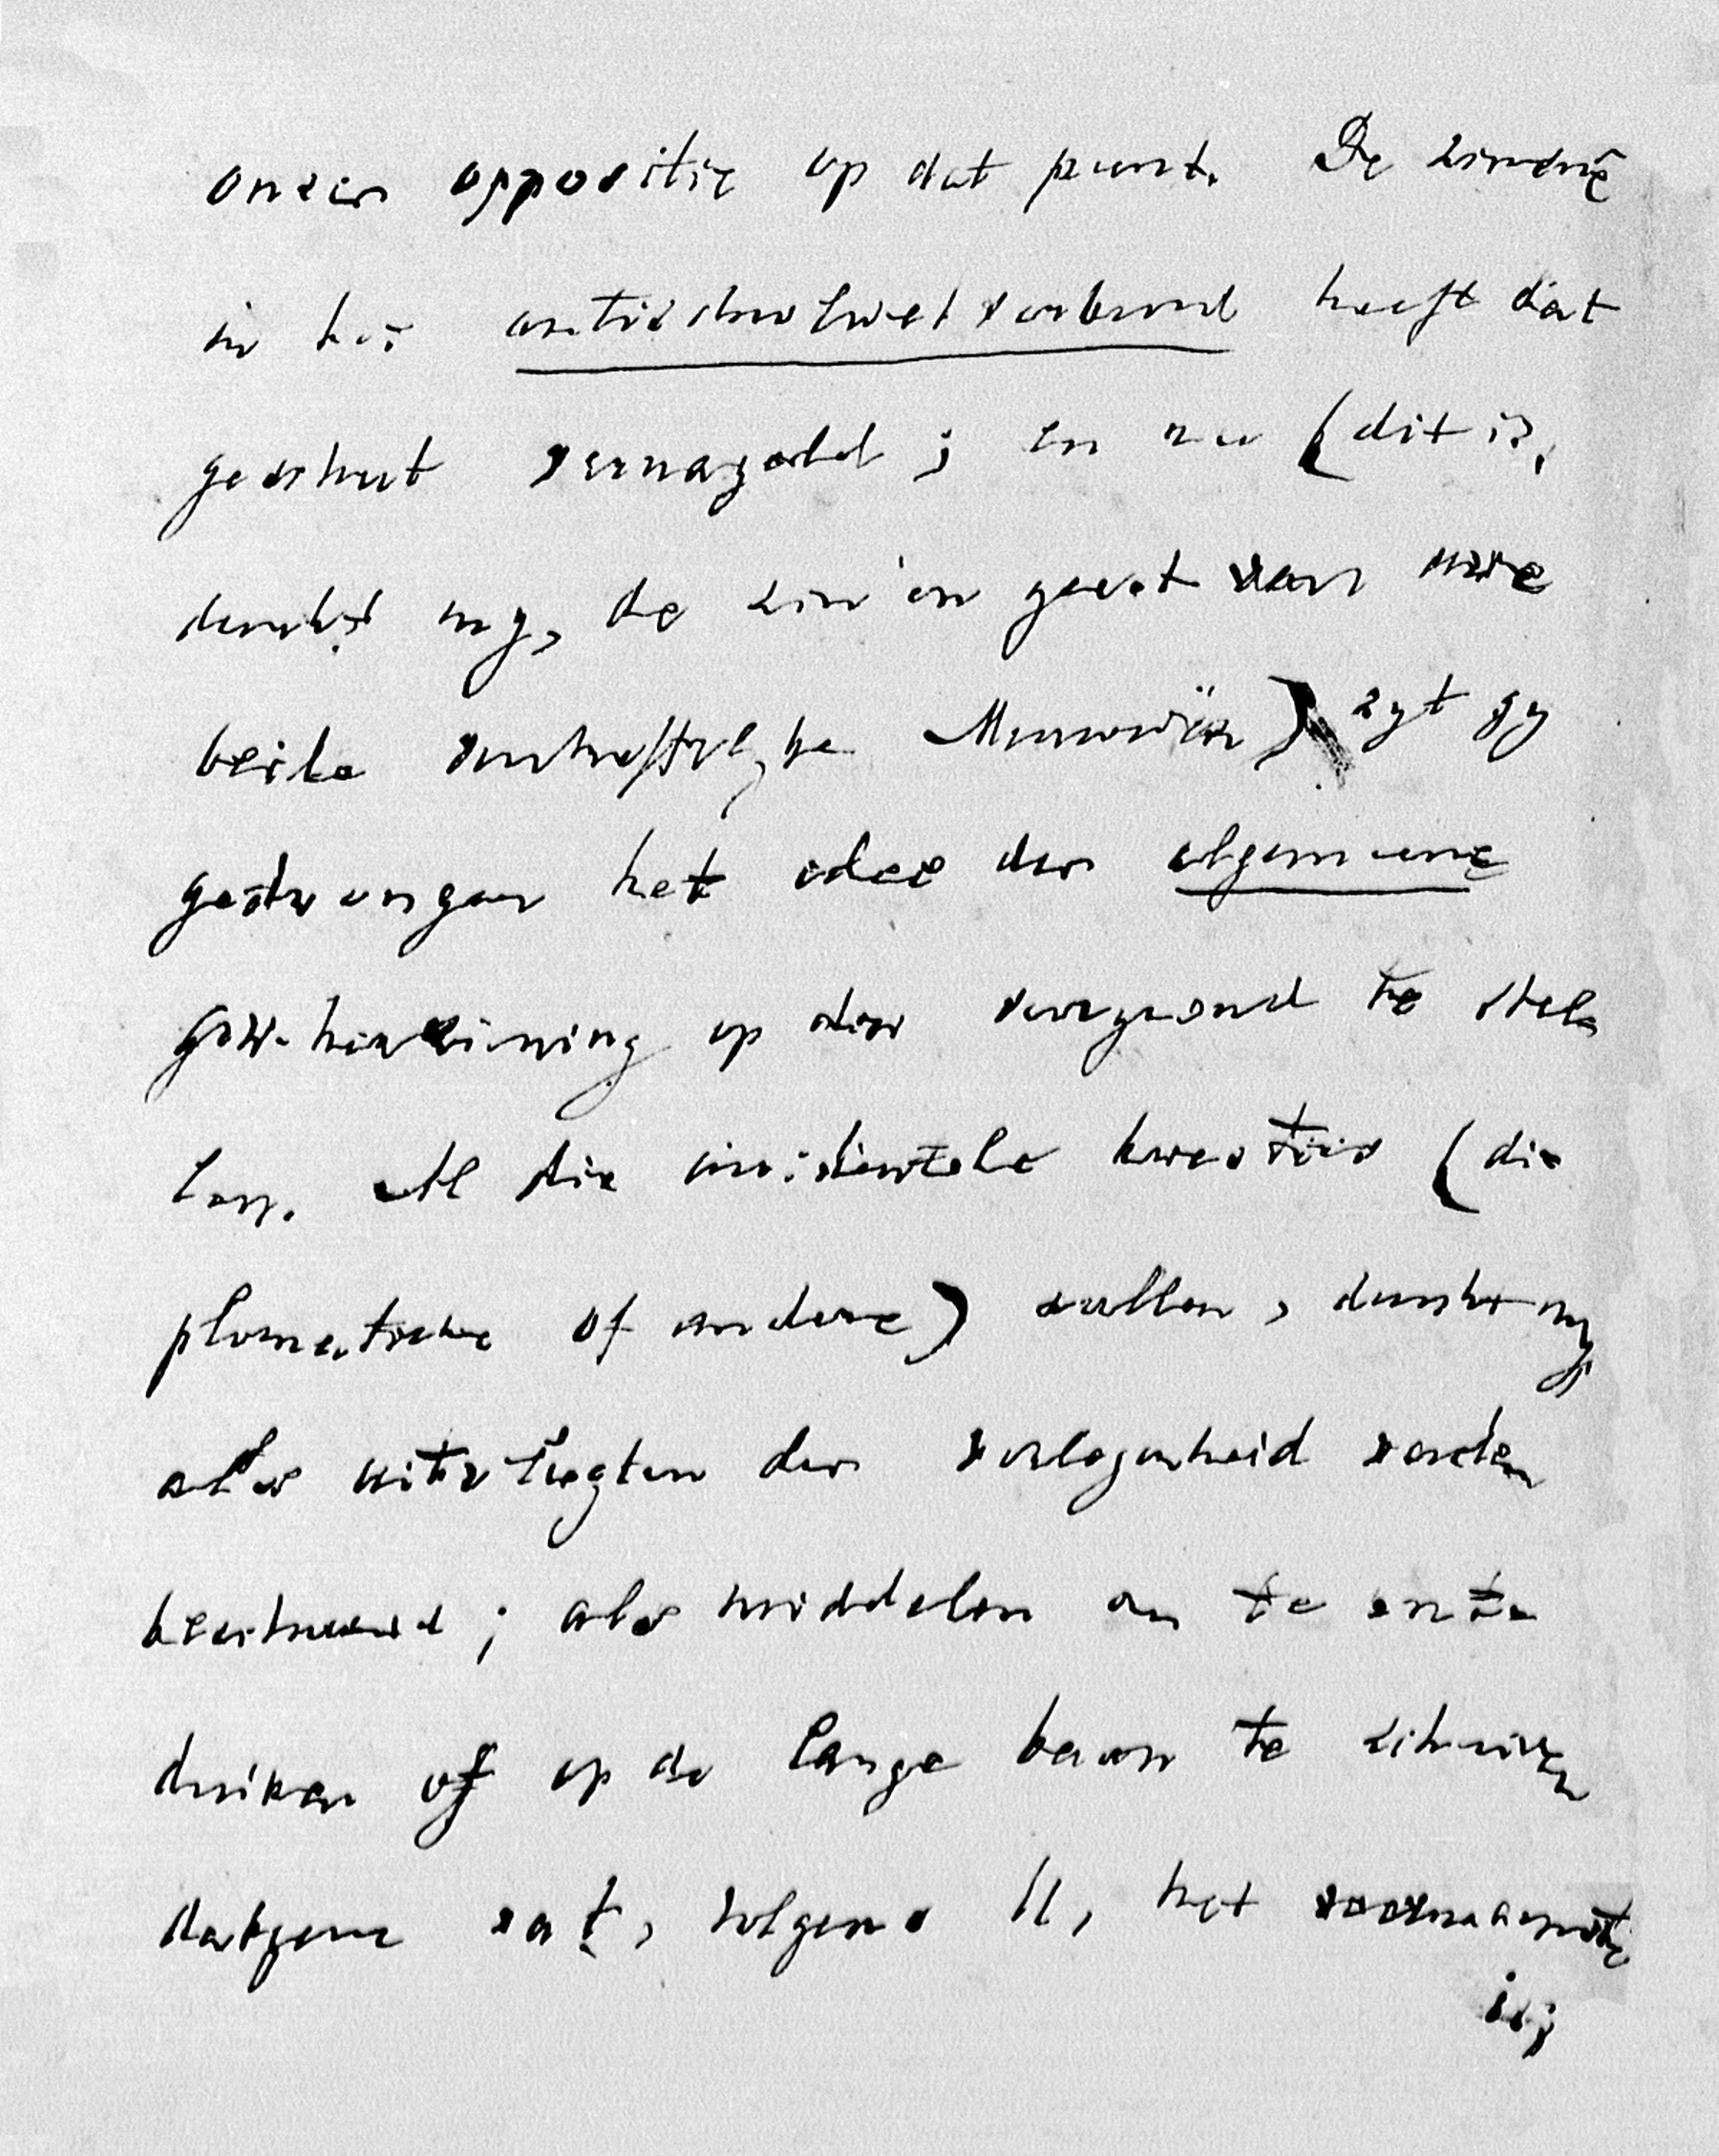 onzer oppositie op dat punt. De zinsnê
in het antischoolwetverbond heeft dat
geschut vernageld; en nu (dit is,
dunkt my, de zin en geest van uwe
beide voortreffelyke Memoriën) zyt gy
gedwongen het idee der algemeene
grw. herziening op den voorgrond te stel-
len. Al die incidentele kwesties (di-
plomatieke of andere) zullen, dunkt my
als uitvlugten der verlegenheid worden
beschouwd; als middelen om te ont-
duiken of op de lange baan te schuiven
datgene wat, volgens U, het voornaamste
is;